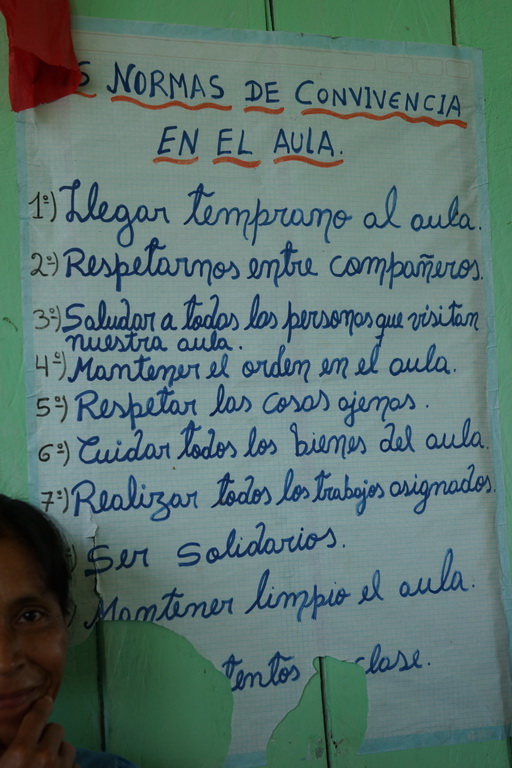 NORMAS DE CONVIVENCIA
EN EL AULA.
1º) Llegar temprano al aula.
2º) Respetarnos entre compañeros.
3º) Saludar a todas las personas que visitan
nuestra aula.
4º) Mantener el orden en el aula.
5º) Respetar las cosas ajenas.
6º) Cuidar todos los bienes del aula.
7º) Realizar todos los trabajos asignados.
Ser solidarios.
Mantener limpio el aula.
tentos clase.